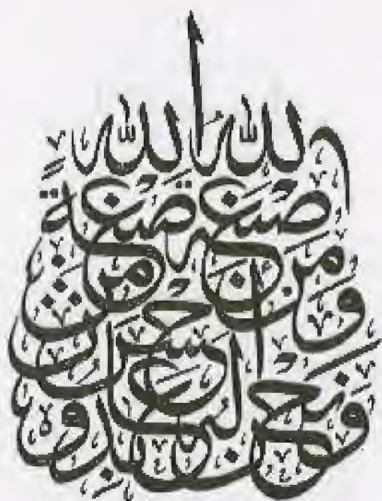 صبغة الله ومن أحسن من الله صبغة ونحن له عابدون